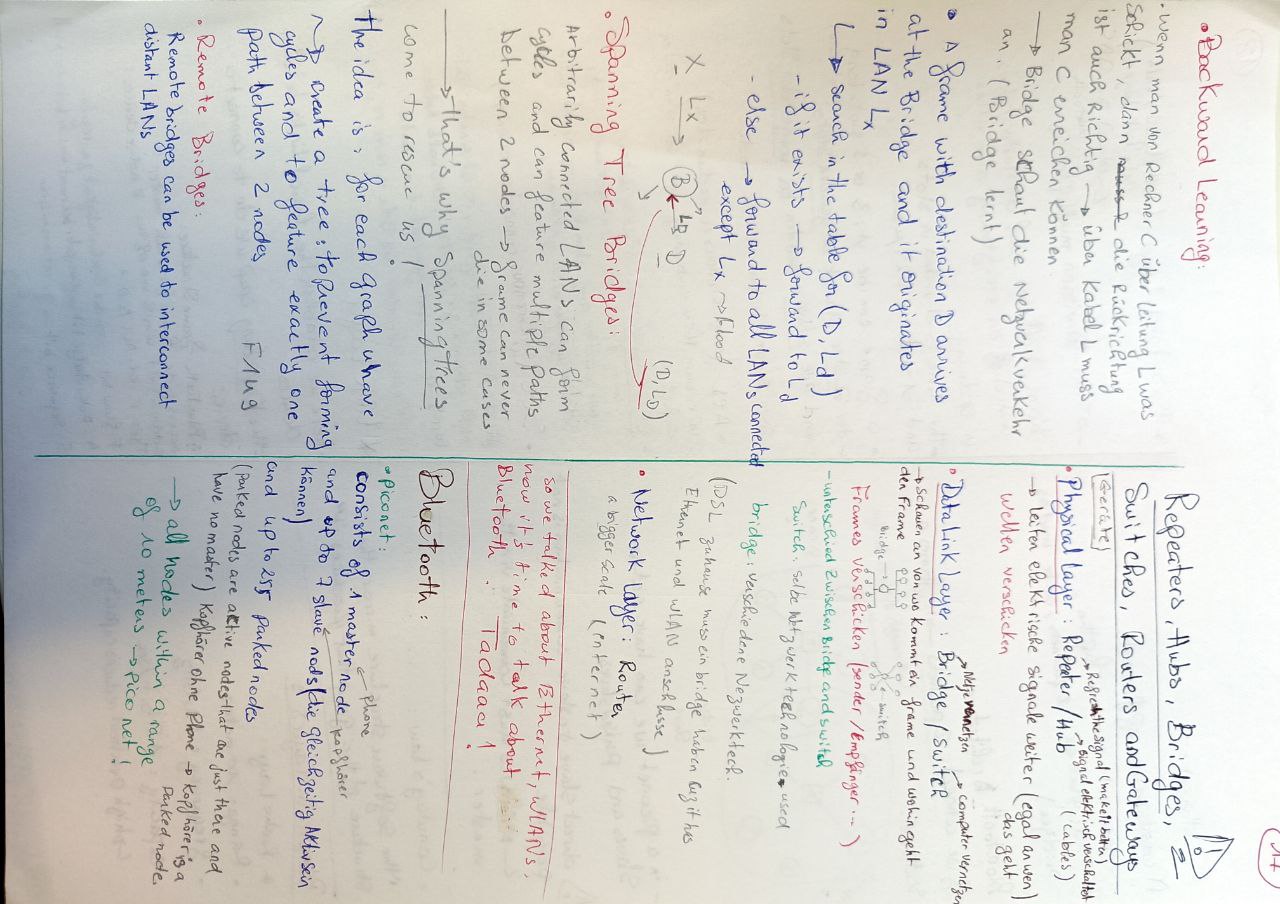 17
• Backward Learning:
• Wenn man von Rechner C über Leitung L was
schickt, dann die Rückrichtung
ist auch Richtig → über Kabel L muss
man C erreichen können.
→ Bridge schaut die Netzwerkverkehr
an. (Bridge lernt)
• A frame with destination D arrives
at the Bridge and it originates
in LAN Lx
↳ search in the table for (D, Ld)
- if it exists → forward to Ld
- else → forward to all LANs connected
except Lx → flood
X Lx → B LD D
(D, LD)
• Spanning Tree Bridges:
Arbitrarily connected LANs can form
cycles and can feature multiple paths
between 2 nodes → frame can never
die in some cases
→ that's why Spanning trees
come to rescue us!
the idea is: for each graph we have
~> create a tree: to prevent forming
cycles and to feature exactly one
path between 2 nodes
• Remote Bridges:
Remote bridges can be used to interconnect
distant LANs
Repeaters, Hubs, Bridges,
Switches, Routers and Gateways
(Geräte)
→ Refresh the signal (make it better)
→ signal elektrisch verschaltet
• Physical layer: Repeater / Hub (cables)
→ leiten elektrische signale weiter (egal an wen
das geht)
wollen verschicken
→ Netze vernetzen → computer vernetzen
• Data Link Layer: Bridge / Switch
→ Schauen an von wo kommt ein frame und wohin geht
der Frame
Bridge → ← switch
Frames verschicken (sender / Empfänger ...)
- unterschied zwischen Bridge and switch
Switch: selbe Netzwerktechnologie used
bridge: verschiedene Nezwerktech.
(DSL zuhause muss ein bridge haben cuz it has
Ethernet und WLAN anschlüsse)
• Network Layer: Router
a bigger scale (internet)
so we talked about Ethernet, WLANs,
now it's time to talk about
Bluetooth. Tadaaa!
Bluetooth:
• piconet: ← phone
consists of 1 master node kopfhörer
and up to 7 slave nods (die gleichzeitig Aktiv sein
können)
and up to 255 parked nodes
(parked nodes are active nodes that are just there and
have no master) Kopfhörer ohne Phone → kopfhörer is a
parked node.
→ all nodes within a range
of 10 meters → pico net!